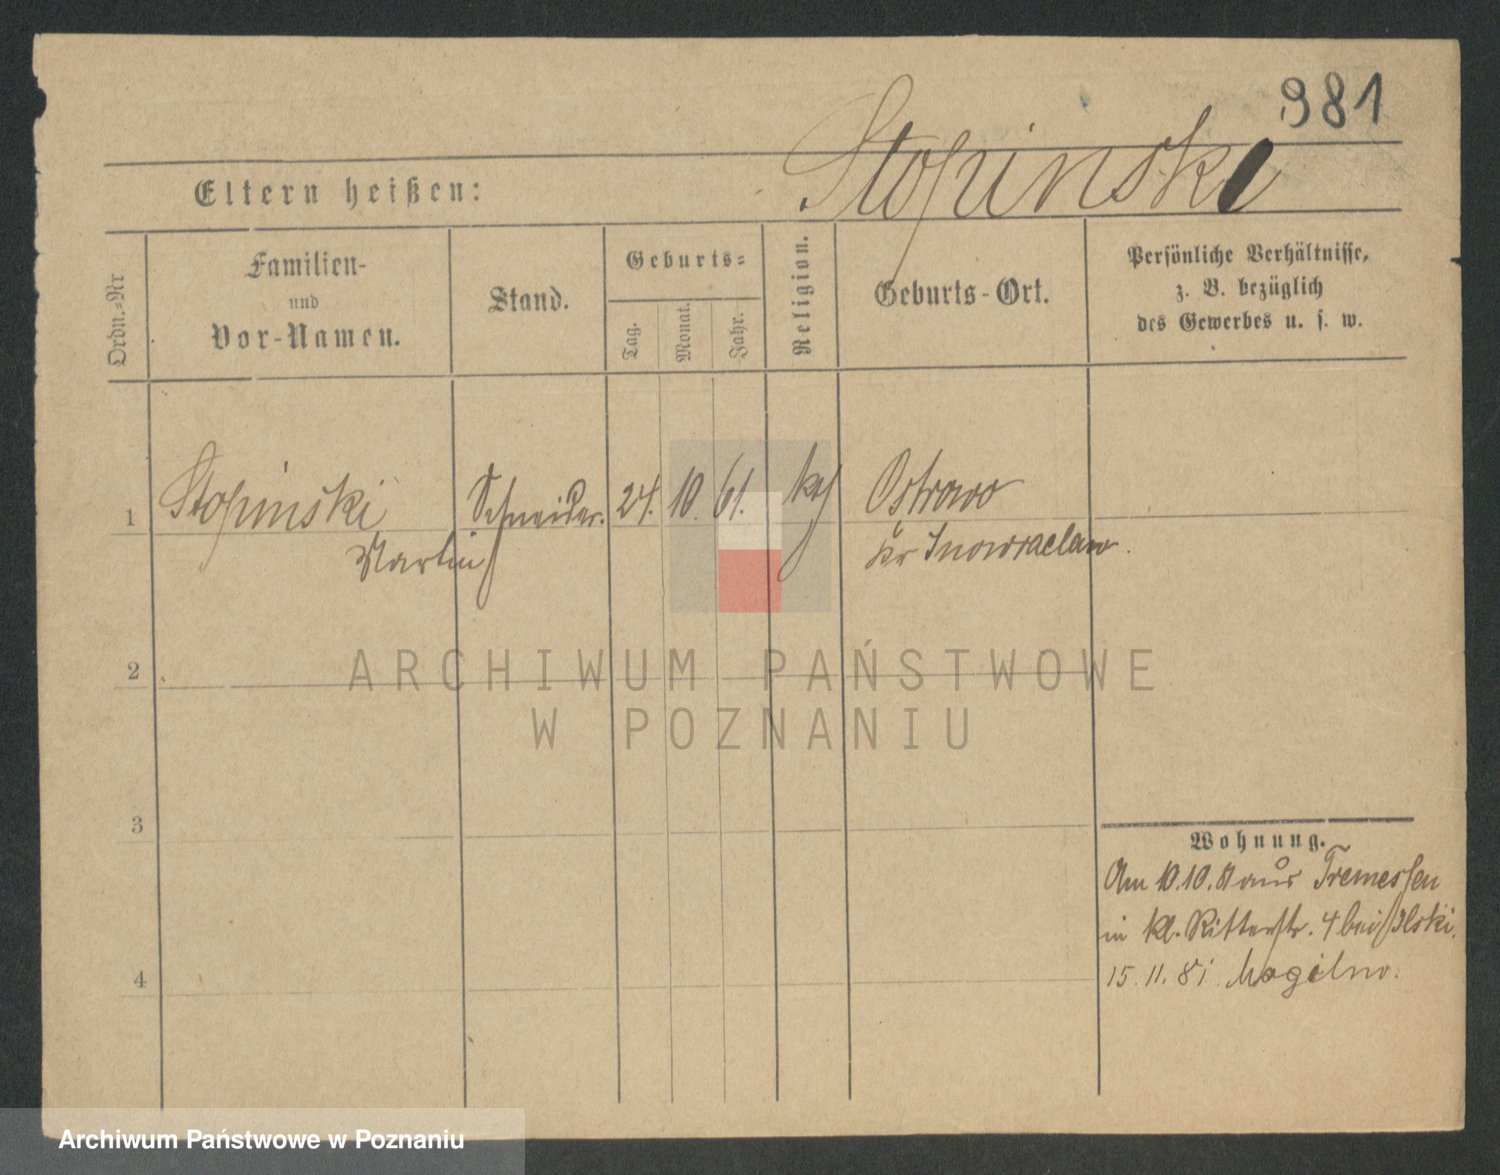 981
Stopinski
Eltern heißen:
Ordn.=Nr
Familien-
und
Vor-Namen.
Stand.
Geburts=
Tag.
Monat.
Jahr.
Religion.
Geburts-Ort.
Persönliche Verhältnisse,
z. B. bezüglich
des Gewerbes u. s. w.
1
Stopinski
Martin
Schneider.
24.
10.
61.
kath
Ostrowo
Kr Inowraclaw.
2
3
4
Wohnung.
Am 10.10.81 aus Tremessen
in kl. Ritterstr. 4 bei
15.11.81 Mogilno.
ARCHIWUM PAŃSTWOWE
W POZNANIU
Archiwum Państwowe w Poznaniu